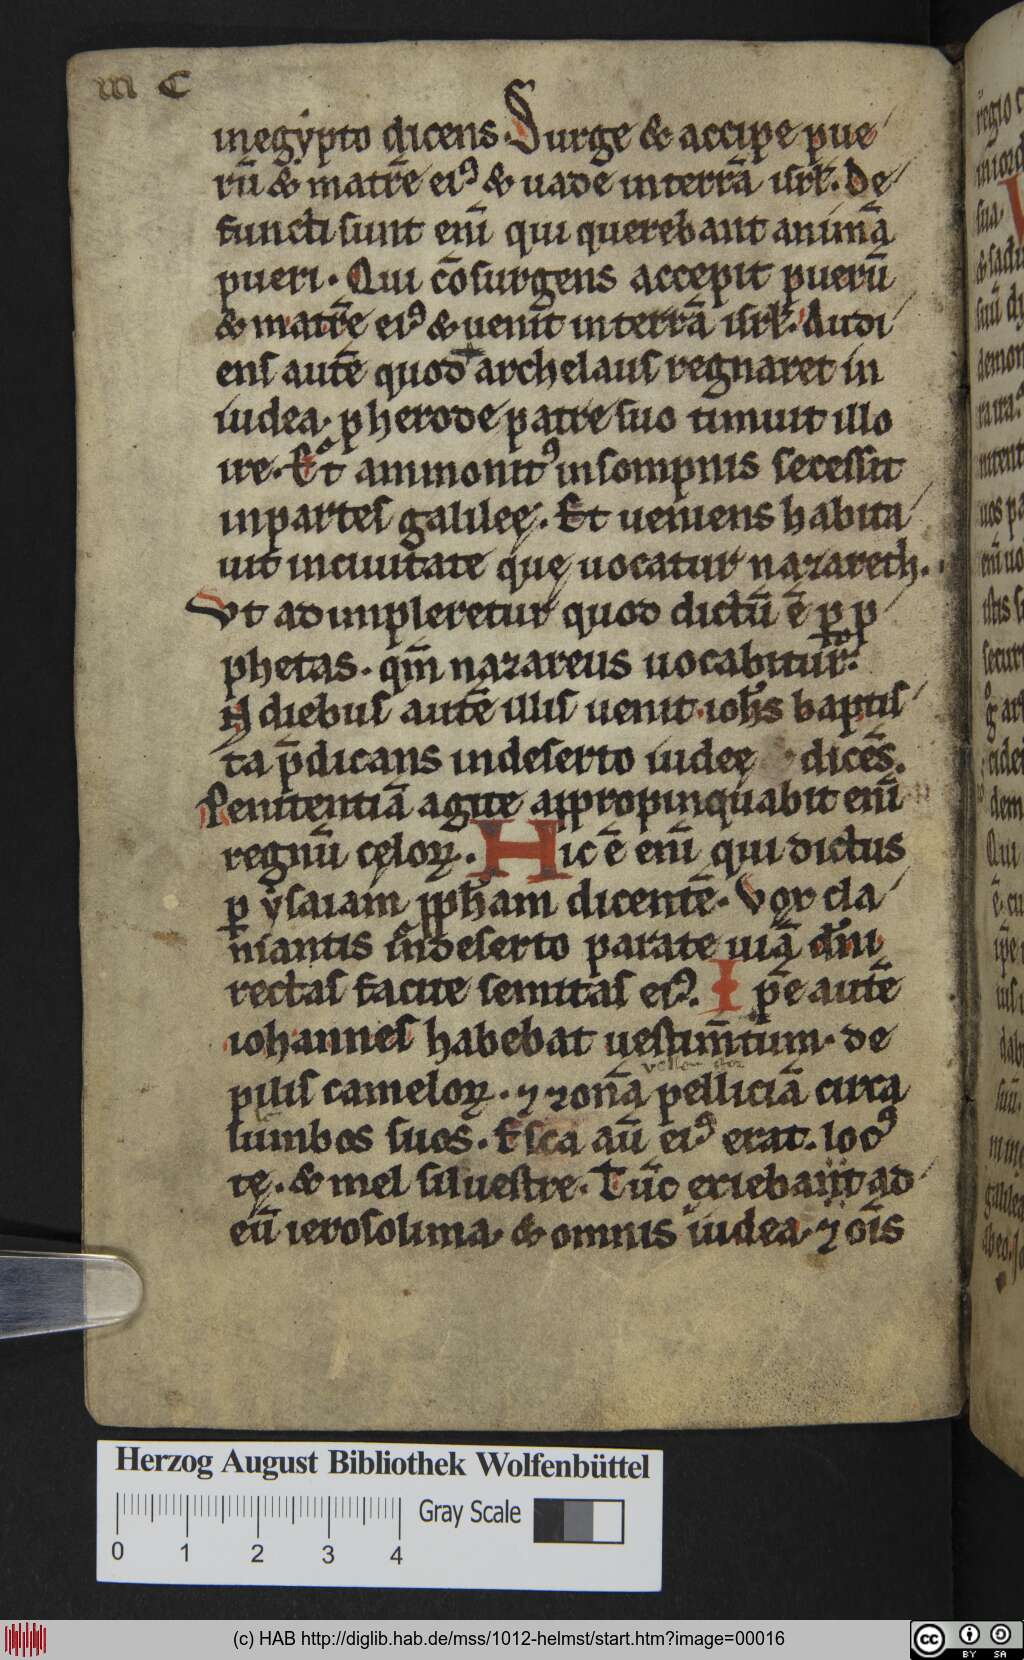 III C
inegypto dicens. Surge & accipe pue
rū & matrē ei⁹ & uade interrā isrl̄. De
functi sunt enī qui querebant animā
pueri. Qui cōsurgens accepit puerū
& matrē ei⁹ & uenit interrā isrl̄. Audi
ens autē quod archelaus regnaret in
iudea. p herode patre suo timuit illo
ire. Et ammonit⁹ insompnis secessit
inpartes galileę. Et ueniens habita
uit inciuitate quę uocatur nazareth.
Vt adimpleretur quod dictū ē ꝑ ꝓ
phetas. qm̄ nazareus uocabitur.
diebus autē illis uenit iohs baptis
ta p̄dicans indeserto iudeę dicēs.
Penitentiā agite appropinquabit enī
regnū cęloꝝ. Hic ē enī qui dictus
ꝑ ysaiam ꝓph̄am dicentē. Vox cla
mantis indeserto parate uiā dn̄i
rectas facite semitas ei⁹. Ip̄e autē
iohannes habebat uestim̄tum. de
pilis cameloꝝ. ⁊ zonā pelliciā circa
lumbos suos. Esca aū ei⁹ erat. loc⁹
tę. & mel siluestre. Tūc exiebant ad
eū ierosolima. & omnis iudea. ⁊ oīs
Herzog August Bibliothek Wolfenbüttel
Gray Scale
0 1 2 3 4
(c) HAB http://diglib.hab.de/mss/1012-helmst/start.htm?image=00016
cc BY SA